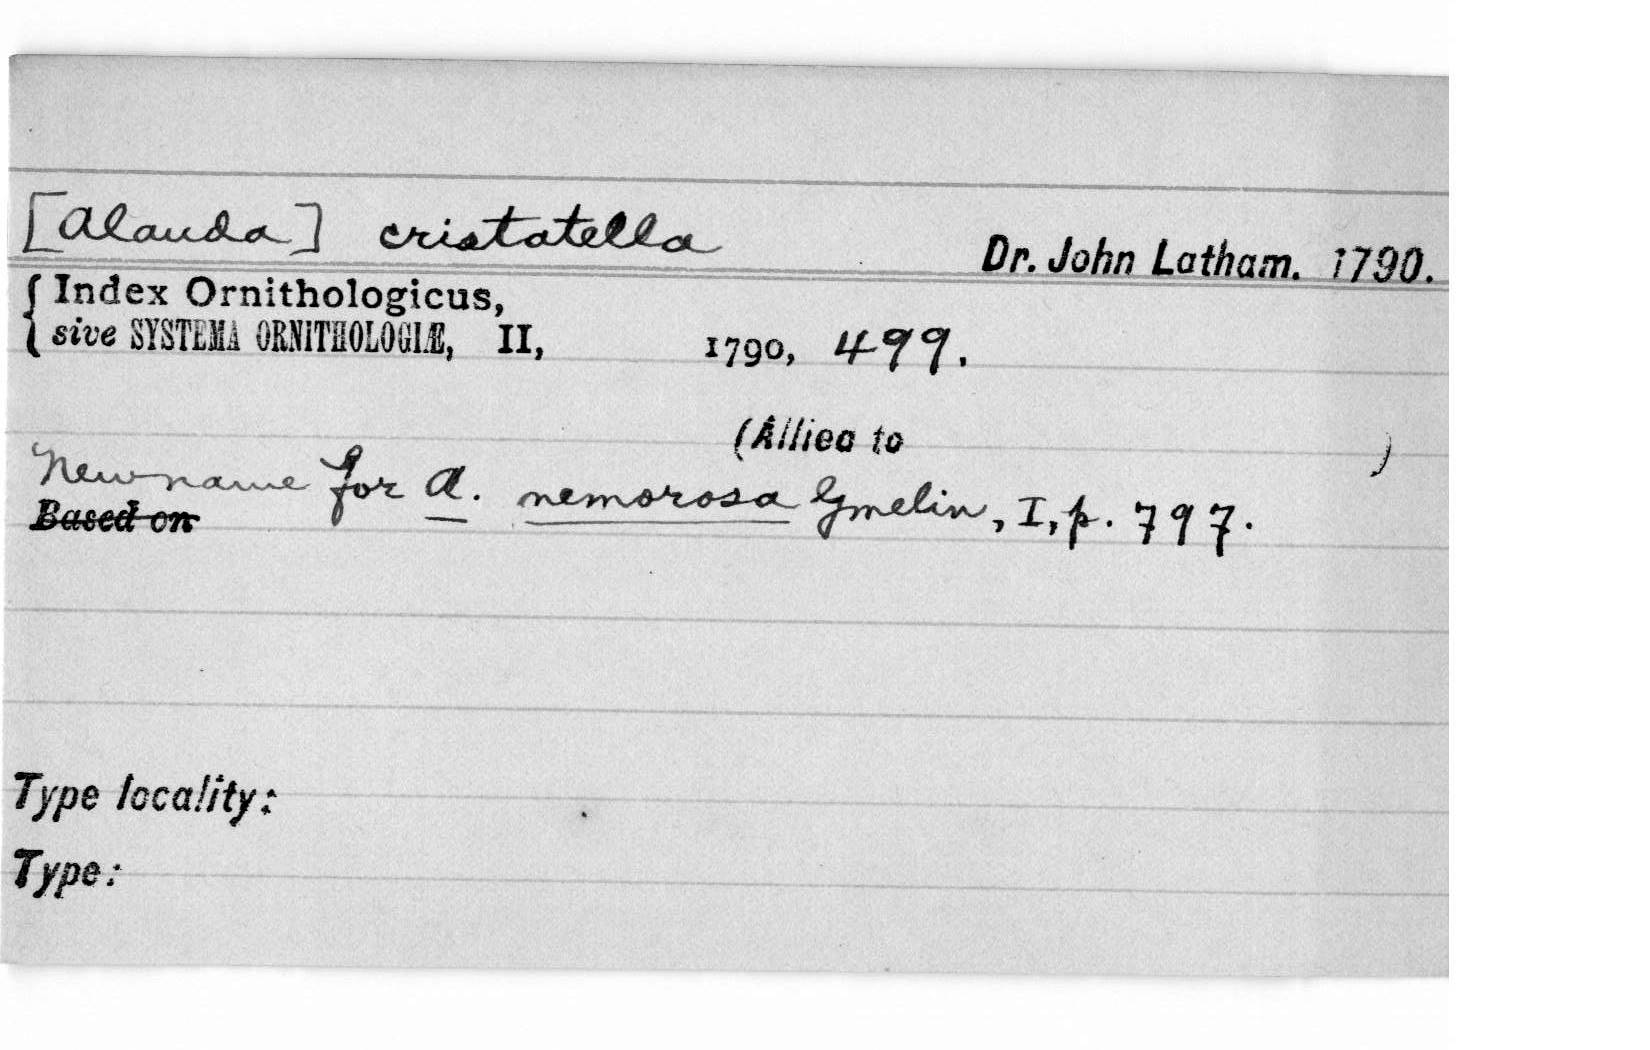 [Alauda] cristatella Dr. John Latham. 1790.
Index Ornithologicus,
sive SYSTEMA ORNITHOLOGIÆ, II, 1790, 499.
(Allied to )
New name for A. nemorosa Gmelin, I, p. 797.
Based on
Type locality:
Type: